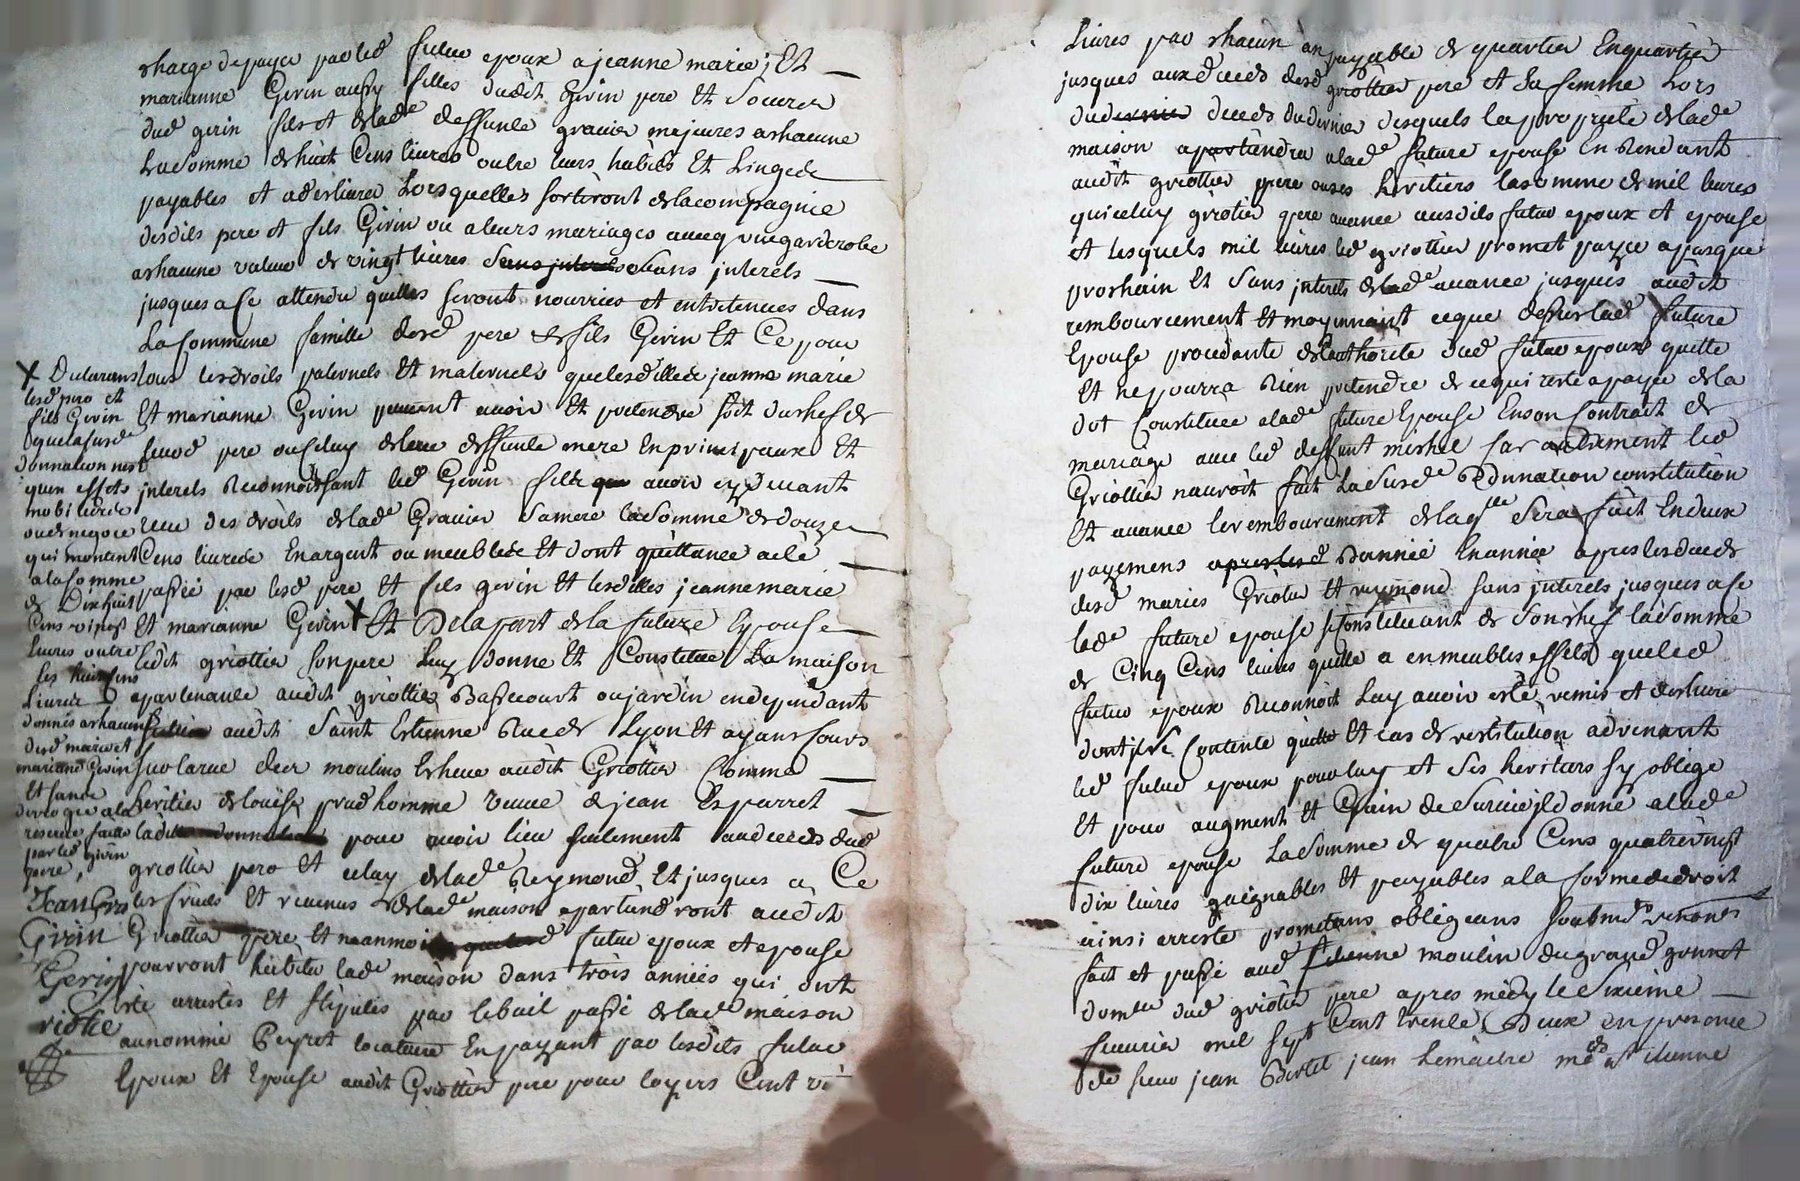 charge de payer par led futur epoux a jeanne marie, Et
marianne Gerin aussy filles dudit Gerin pere Et Soeurs
dud gerin fils et de lade deffunte gravier majeures a chacune
La Somme de huit Cens livres outre leurs habits Et Linge de
payables et a deslivrer Lors quelles sortiront de la compagnie
desdits pere et fils Gerin ou a leurs mariages avecq une garderobe
a chacune valeur de vingt livres Sans interets Sans interets
jusques a ce attendu quelles seront nourries et entretenues dans
La Commune famille desd pere et fils Gerin Et Ce pour
tous les droits paternels Et maternels que lesdittes jeanne marie
Et marianne Gerin peuvent avoir Et pretendre soit du chef de
leurd pere ou celuy de leur deffunte mere En principaux Et
interets Reconnoissant led Gerin fils avoir cy devant
receu des droits de lade Gravier Sa mere la Somme de douze
Cens livres de En argent ou meubles Et dont quittance a été
passée par lesd pere Et fils gerin Et lesdittes jeanne marie
Et marianne Gerin X Et De la part de la future Epouse
ledit griottier son pere Luy donne Et Constitue La maison
apartenante audit griottier Basse court ou jardin en dependant
audit Saint Estienne Rue de Lyon et ayant Cours
sur la rue des moulins Echeue audit Griottier Comme
heritier de Louise prudhomme veuve de jean Esparret
pour avoir lieu seulement au deces dud
griottier pere Et celuy de lade Reymond Et jusques a Ce
les fruits Et revenus de lade maison apartiendront audit
Griottier pere, Et neanmoins futur epoux et epouse
pourront habiter lade maison dans trois années qui ont
été arrestes et stipules par le bail passé de lade maison
au nommé Peyret locataire En payant par lesdits futur
Epoux Et Epouse audit Griottier pere pour loyers Cent
X Declarans
lesd pere et
fils Gerin
que la susde
donnation nest
quen effets
mobiliers
ou de negoce
qui montent
a la somme
de Dix huit
Cens
livres outre
les huit cens
livres
donnés a chacune
desd marie et
mariane Gerin
Et sans
deroger a la
reserve faite
par led gerin
pere,
Jean Gerin
Gerin
Gerin
Livres par chacun an payable de quartier En quartier
jusques aux deceds desd griottier pere et Sa femme Lors
du dernier deceds du dernier desquels la proprieté de lade
maison apartiendra a lade future epouse En Rendant
audit griottier pere ou ses heritiers la somme de mil livres
quiceluy griotier pere avance ausdits futur epoux et epouse
et lesquels mil livres led griottier promet payer a pasque
prochain Et Sans interets de lad avance jusques audit
remboursement Et moyennant ce que dessus lade future
Epouse procedante de l'authorité dud futur epoux quitte
Et ne pourra Rien pretendre de ce qui reste a payer de la
dot Constituée a lade future Epouse En son Contract de
mariage avec led deffunt michel Car autrement led
Griottier nauroit fait La susde Donnation constitution
Et avance le remboursement de laqlle Sera fait En deux
payemens apres lesd Dannée En année apres les deceds
desd mariés Griotier Et reymond sans interets jusques a ce
lade future epouse se Constituant de son chef la somme
de Cinq Cens livres quelle a en meubles effets que led
futur epoux Reconnoit Luy avoir esté remis et deslivré
dont il se Contente quitte Et cas de restitution advenant
led futur epoux pour luy et Ses heritiers sy oblige
Et pour augment et Gain de Survie il donne a lade
future epouse La Somme de quatre Cens quatre vingt
dix livres gaignables et payables a la forme de droit
ainsi arresté promettans obligeans soubmis renonc
fait et passé aud St etienne moulin du grand gonnet
domlle dud griotier pere apres midy le Sixieme
fevrier mil Sept Cent trente Deux en presence
de sieur jean Bertet jean Lemaitre md a St etienne